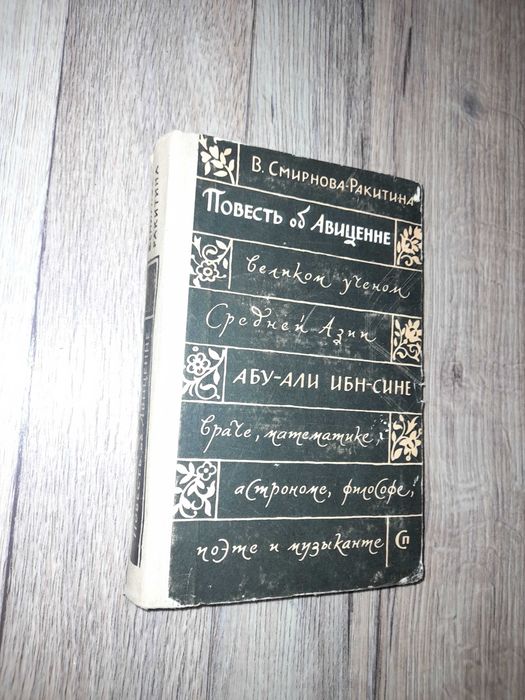 В. Смирнова-Ракитина
Повесть об Авиценне
великом ученом
Средней Азии
АБУ-АЛИ ИБН-СИНЕ
враче, математике,
астрономе, философе,
поэте и музыканте
СП
РАКИТИНА
ПОВЕСТЬ ОБ АВИЦЕННЕ